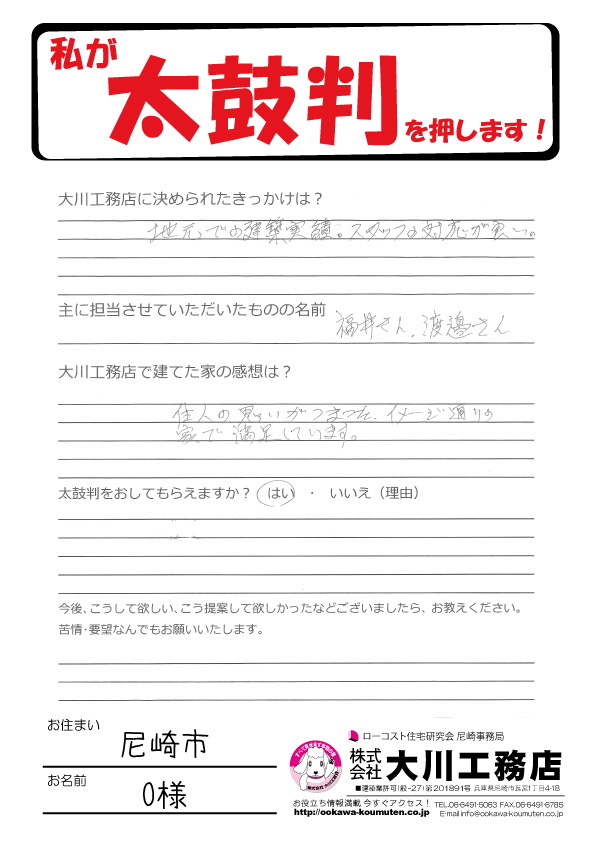 私が
太鼓判
を押します！
大川工務店に決められたきっかけは？
地元での建築実績。スタッフの対応が良い。
主に担当させていただいたものの名前
福井さん、渡邉さん
大川工務店で建てた家の感想は？
住人の思いがつまった、イメージ通りの
家で満足しています。
太鼓判をおしてもらえますか？ はい ・ いいえ（理由）
今後、こうして欲しい、こう提案して欲しかったなどございましたら、お教えください。
苦情・要望なんでもお願いいたします。
お住まい
尼崎市
お名前
O様
ローコスト住宅研究会 尼崎事務局
株式会社 大川工務店
■建築業許可(般-27)第201891号 兵庫県尼崎市瓦宮1丁目4-18
お役立ち情報満載 今すぐアクセス！ TEL.06-6491-5063 FAX.06-6491-6785
http://ookawa-koumuten.co.jp E-mail info@ookawa-koumuten.co.jp